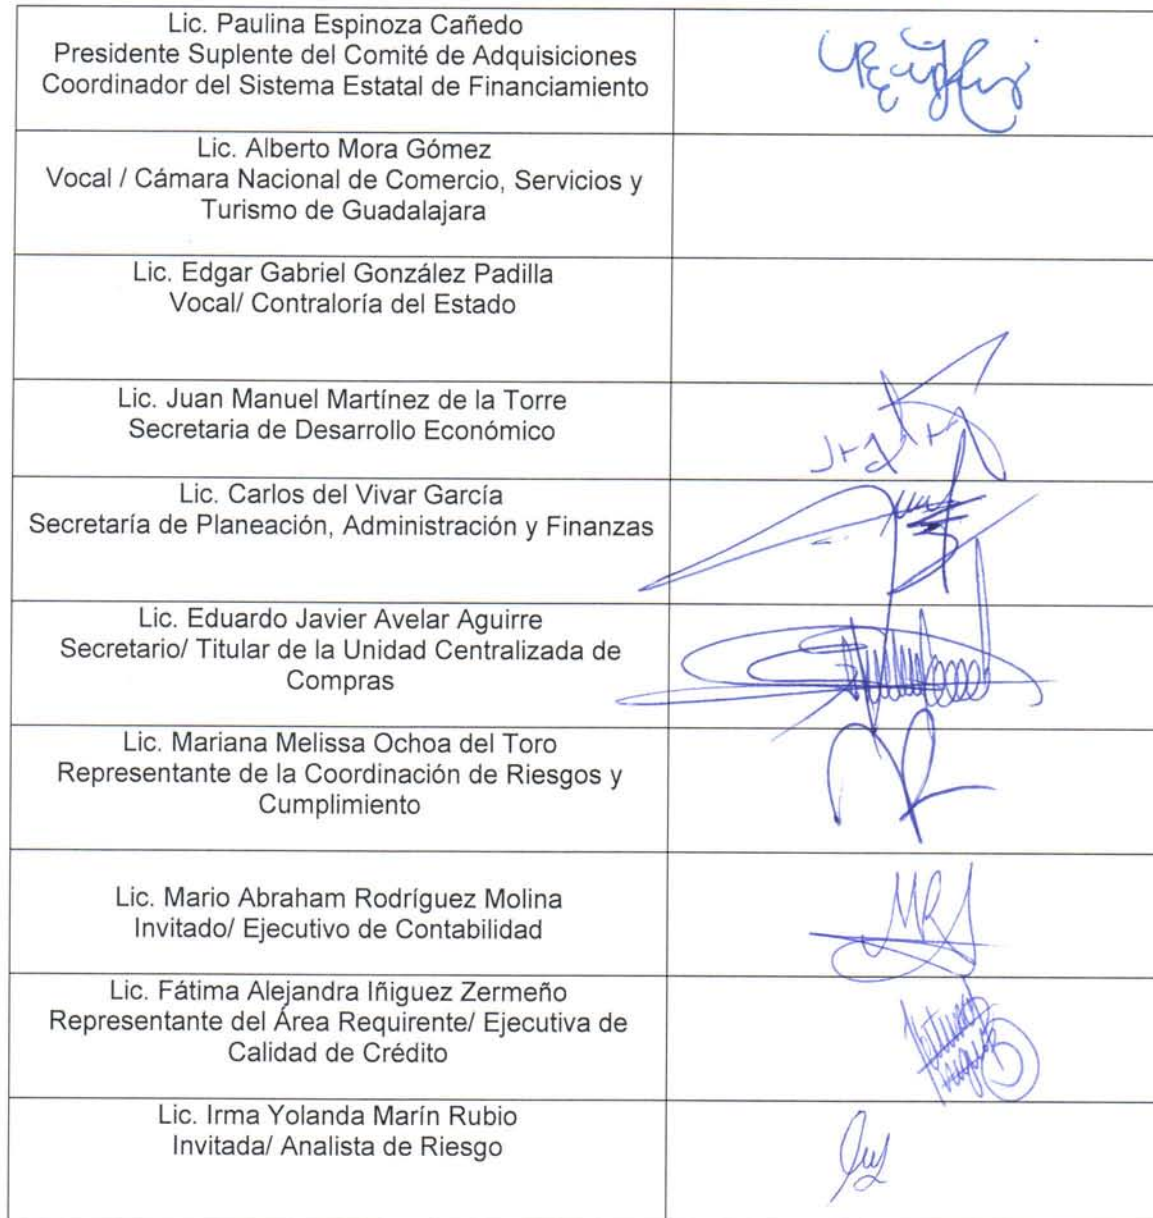 Lic. Paulina Espinoza Cañedo
Presidente Suplente del Comité de Adquisiciones
Coordinador del Sistema Estatal de Financiamiento
Lic. Alberto Mora Gómez
Vocal / Cámara Nacional de Comercio, Servicios y
Turismo de Guadalajara
Lic. Edgar Gabriel González Padilla
Vocal/ Contraloría del Estado
Lic. Juan Manuel Martínez de la Torre
Secretaria de Desarrollo Económico
Lic. Carlos del Vivar García
Secretaría de Planeación, Administración y Finanzas
Lic. Eduardo Javier Avelar Aguirre
Secretario/ Titular de la Unidad Centralizada de
Compras
Lic. Mariana Melissa Ochoa del Toro
Representante de la Coordinación de Riesgos y
Cumplimiento
Lic. Mario Abraham Rodríguez Molina
Invitado/ Ejecutivo de Contabilidad
Lic. Fátima Alejandra Iñiguez Zermeño
Representante del Área Requirente/ Ejecutiva de
Calidad de Crédito
Lic. Irma Yolanda Marín Rubio
Invitada/ Analista de Riesgo